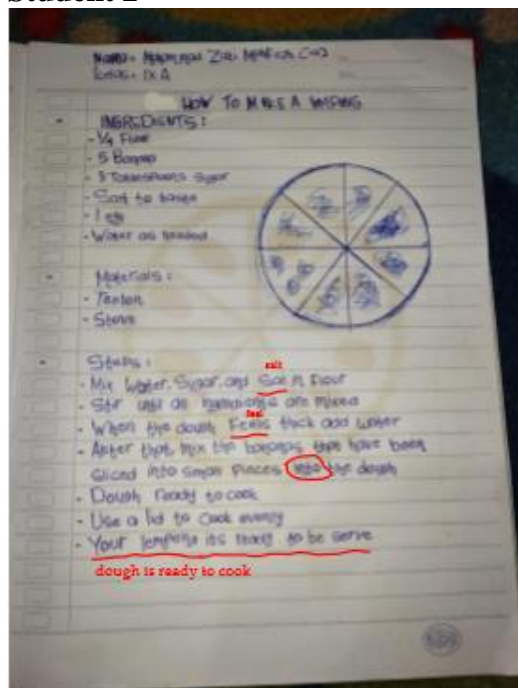 Student 2
Kelas : IX A
HOW TO MAKE A
INGREDIENTS :
- 1/4 Flour
- 5 Banana
- 3 Tablespoons Sugar
- Salt to taste
- 1 egg
- Water as needed
Materials :
- Teflon
- Stove
Steps :
salt
- Mix water, Sugar, and in Flour
- Stir until all are mixed
feel
- When the dough Feels thick add water
- After that, mix the bananas that have been
Sliced into small Pieces into the dough
- Dough ready to cook
- Use a lid to cook evenly
- Your its ready to be serve
dough is ready to cook